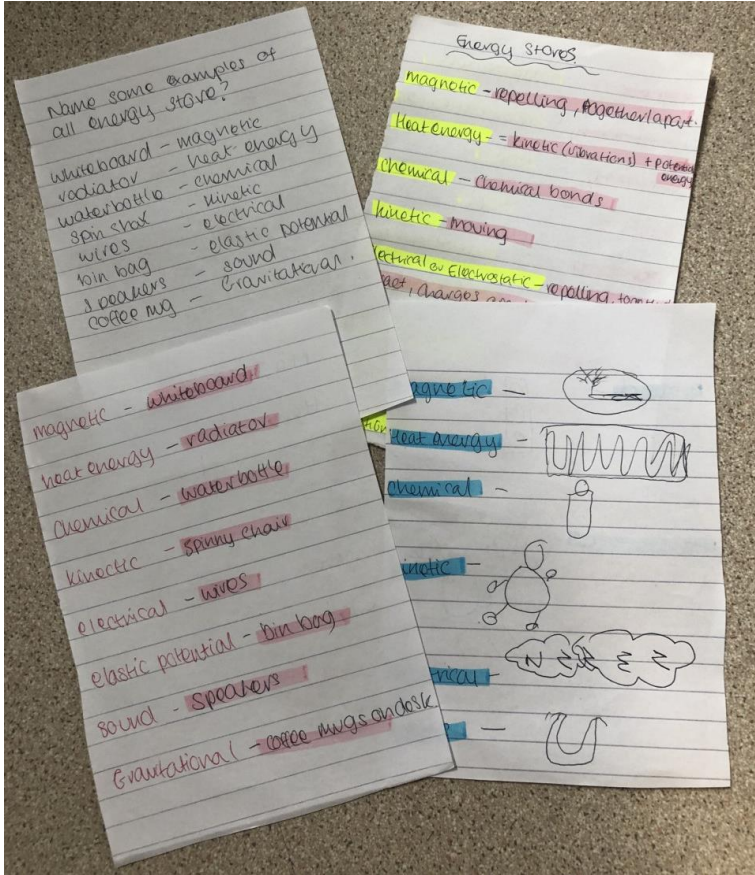 Name some examples of
all energy store?
whiteboard - magnetic
radiator - heat energy
waterbottle - chemical
spin chair - kinetic
wires - electrical
bin bag - elastic potential
speakers - sound
coffee mug - Gravitational.
Energy Stores
magnetic - repelling, together/apart.
Heat energy = kinetic (vibrations) + potential
energy
chemical - chemical bonds
kinetic - moving
lectrical or Electrostatic - repelling,
act, charges
magnetic - whiteboard.
heat energy - radiator.
chemical - waterbottle
kinectic - spinny chair
electrical - wires
elastic potential - bin bag
sound - speakers
Gravitational - coffee mugs on desk.
agnetic -
Heat energy -
chemical -
inetic -
trical -